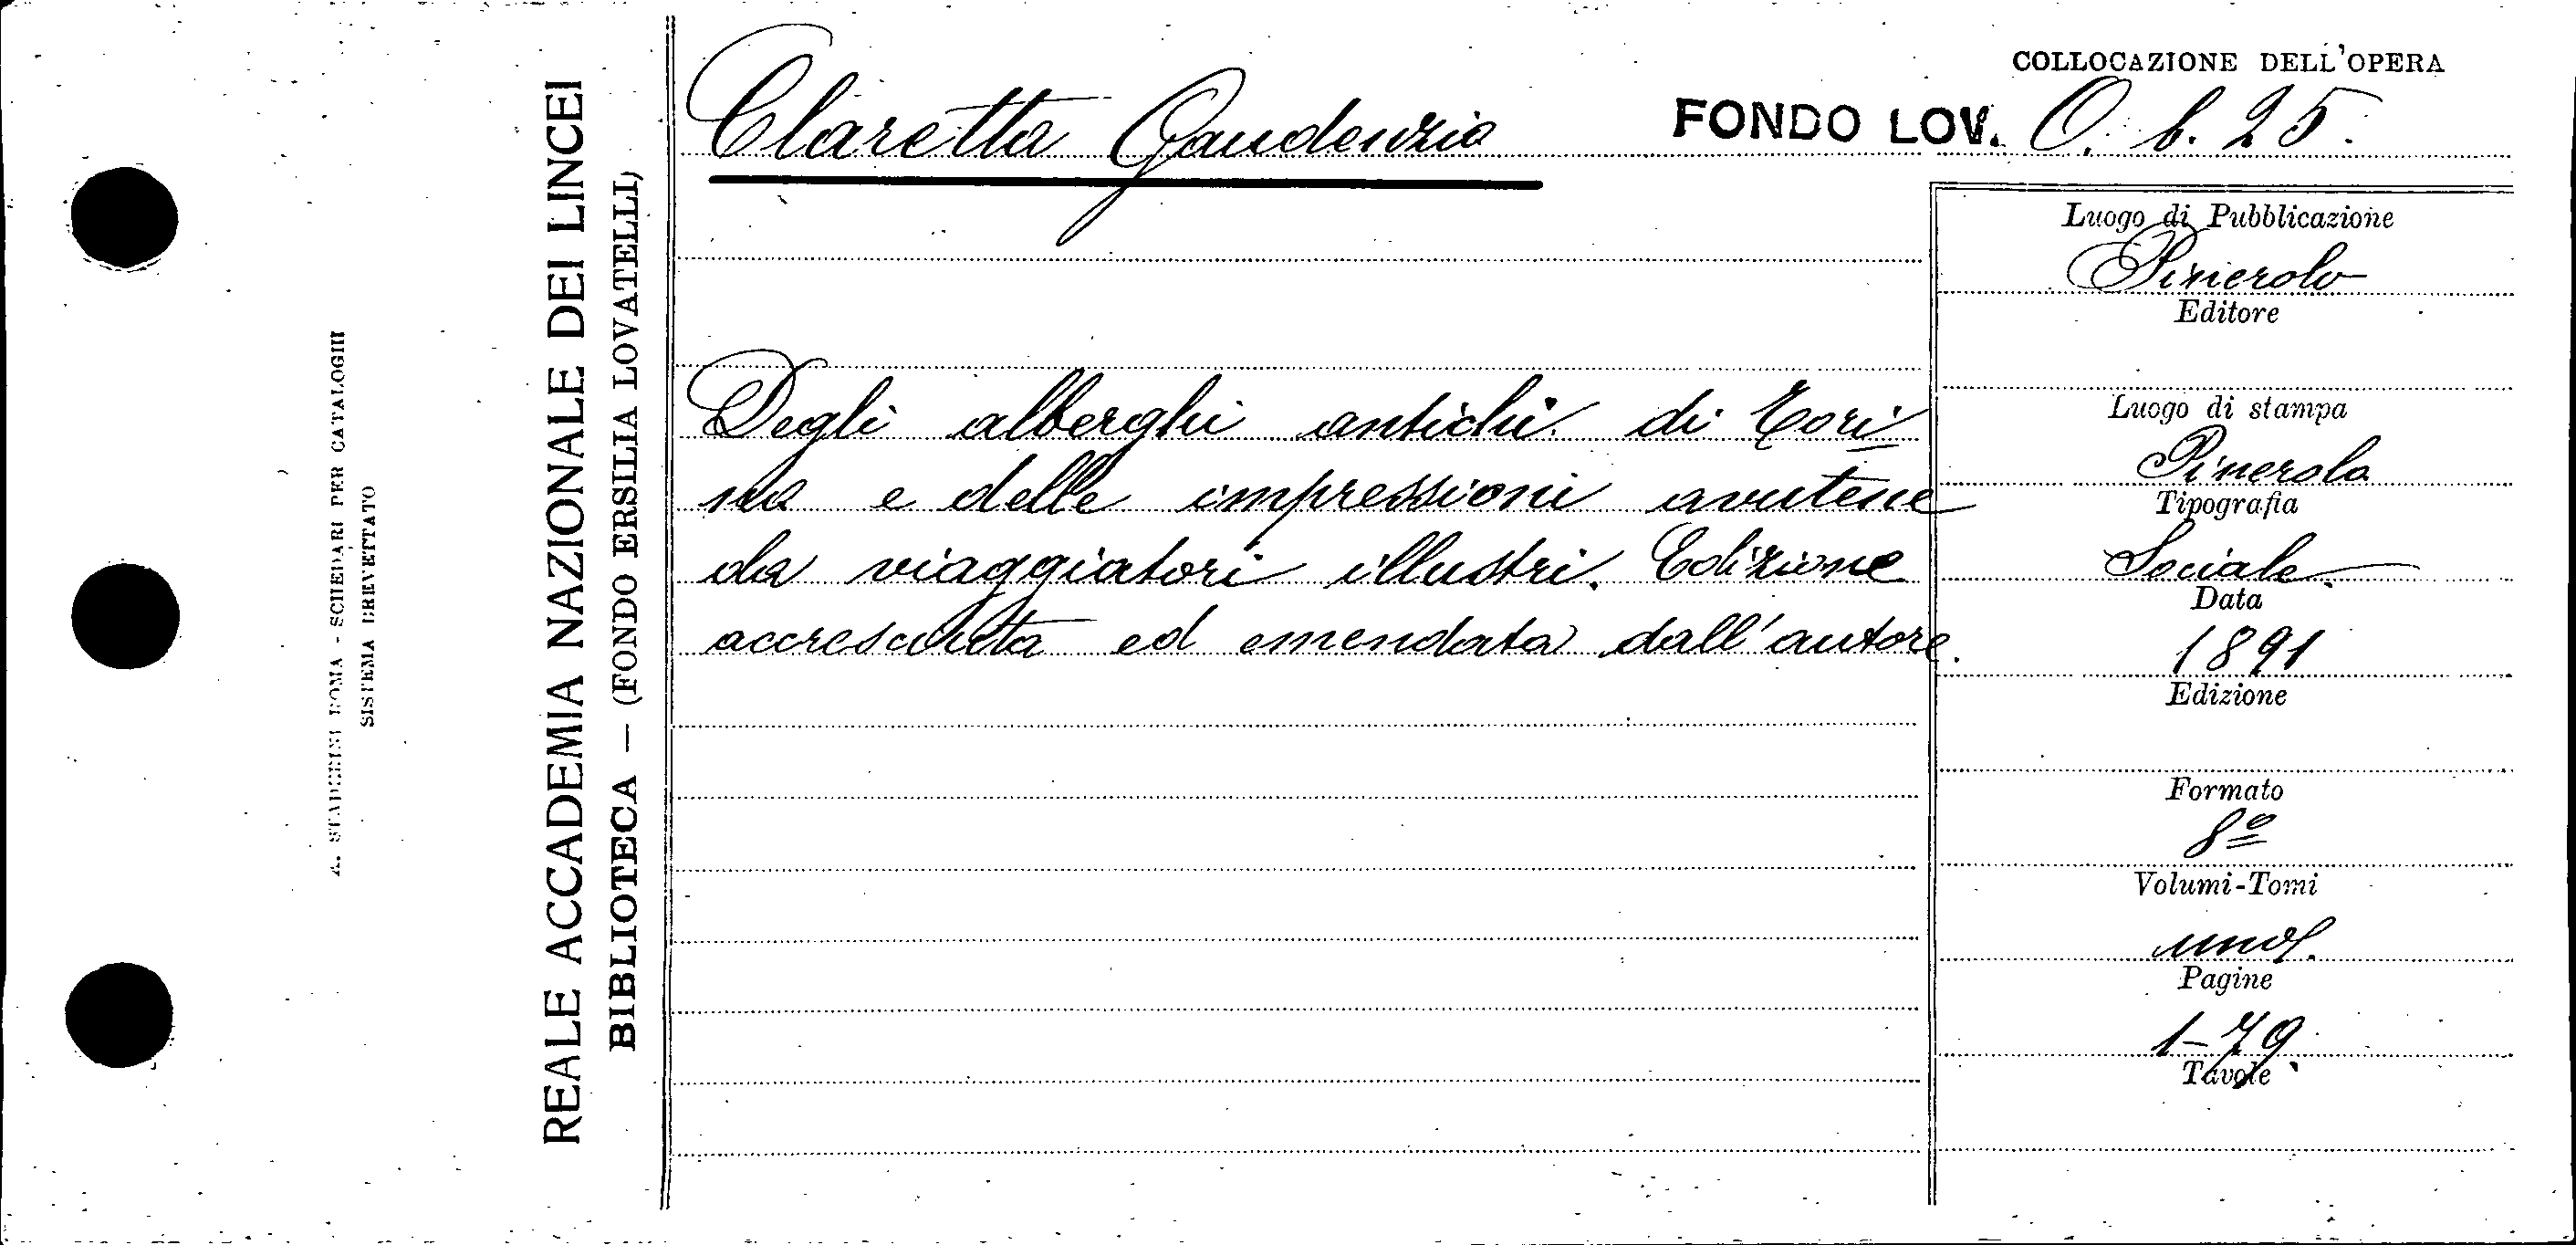 COLLOCAZIONE DELL'OPERA
Claretta Gaudenzio
FONDO LOV. O. b. 25.
Degli alberghi antichi di Tori
no e delle impressioni avutene
da viaggiatori illustri. Edizione
accresciuta ed emendata dall'autore.
Luogo di Pubblicazione
Pinerolo
Editore
Luogo di stampa
Pinerolo
Tipografia
Sociale.
Data
1891
Edizione
Formato
8º
Volumi-Tomi
uno.
Pagine
1-79.
Tavole
REALE ACCADEMIA NAZIONALE DEI LINCEI
BIBLIOTECA — (FONDO ERSILIA LOVATELLI)
ROMA - SCHEDARI PER CATALOGHI
SISTEMA BREVETTATO